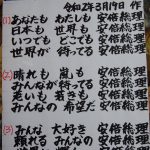 令和2年3月19日 作
(1) あなたも わたしも 安倍総理
日本も 世界も 安倍総理
いつでも どこでも 安倍総理
世界が 待ってる 安倍総理
(2) 晴れも 嵐も 安倍総理
みんなが 待ってる 安倍総理
走いても 若きも 安倍総理
みんなの 希望だ 安倍総理
(3) みんな 大好き 安倍総理
頼れる みんなの 安倍総理